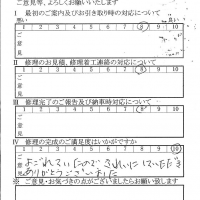 ご意見等、よろしくお願いいたします
Ⅰ 最初のご案内及びお引き取り時の対応について
悪い 良い
1 2 3 4 5 6 7 8 9 10
ご意見
Ⅱ 修理のお見積、修理着工連絡の対応について
1 2 3 4 5 6 7 8 9 10
ご意見
Ⅲ 修理完了のご報告及び納車時対応について
1 2 3 4 5 6 7 8 9 10
ご意見
Ⅳ 修理の完成のご満足度はいかがですか
1 2 3 4 5 6 7 8 9 10
ご意見
よごれていたので きれいに していただき
ありがとうございました
※ ご意見・お気づきの点がございましたらお願い致します